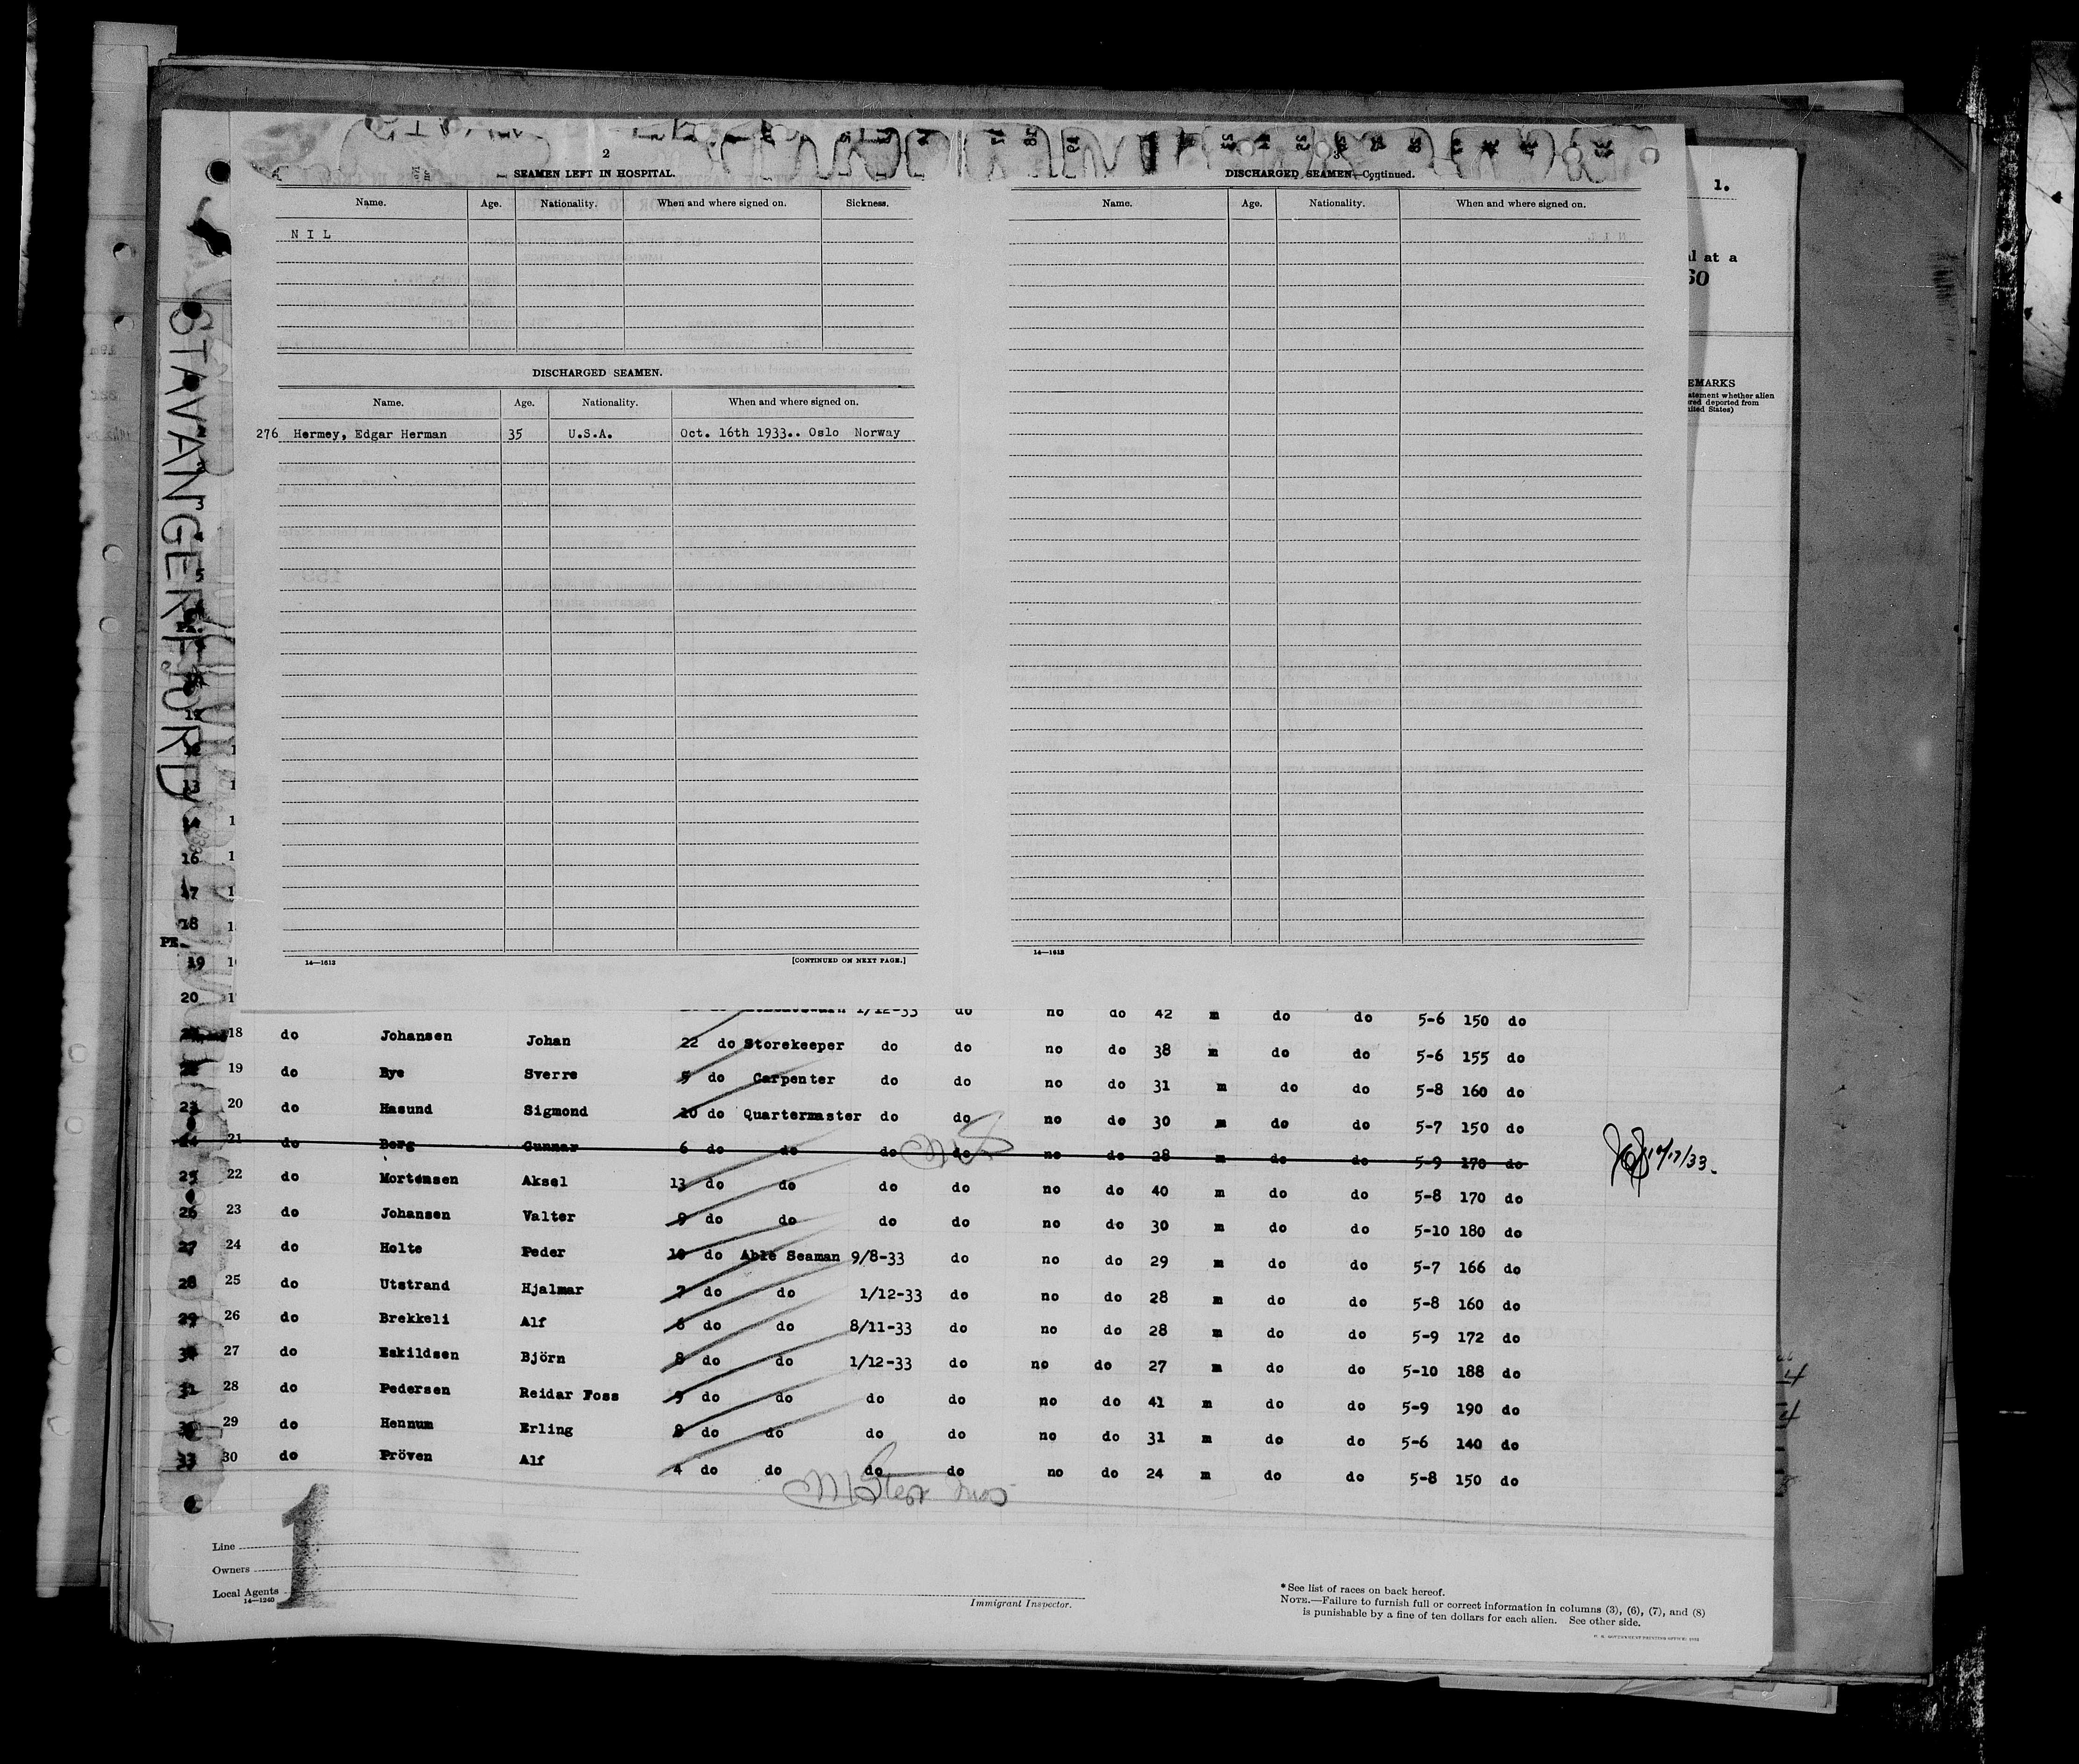 STAVANGERFJORD
2
SEAMEN LEFT IN HOSPITAL.
Name. Age. Nationality. When and where signed on. Sickness.
N I L
DISCHARGED SEAMEN.
Name. Age. Nationality. When and where signed on.
276 Hermey, Edgar Herman 35 U.S.A. Oct. 16th 1933.. Oslo Norway
14—1613 [CONTINUED ON NEXT PAGE.]
3
DISCHARGED SEAMEN—Continued.
Name. Age. Nationality. When and where signed on.
14—1613
1.
al at a
60
EMARKS
atement whether alien
ered deported from
nited States)
3
5
12
13
14
16
17
18
PE
19
20
1/12-33 do no do 42 m do do 5-6 150 do
18 do Johansen Johan 22 do Storekeeper do do no do 38 m do do 5-6 155 do
19 do Bye Sverre 5 do Carpenter do do no do 31 m do do 5-8 160 do
23 20 do Hasund Sigmond 10 do Quartermaster do do no do 30 m do do 5-7 150 do
24 21 do Berg Gunnar 6 do do do do no do 28 m do do 5-9 170 do
25 22 do Mortensen Aksel 13 do do do do no do 40 m do do 5-8 170 do
26 23 do Johansen Valter 9 do do do do no do 30 m do do 5-10 180 do
27 24 do Holte Peder 10 do Able Seaman 9/8-33 do no do 29 m do do 5-7 166 do
28 25 do Utstrand Hjalmar 7 do do 1/12-33 do no do 28 m do do 5-8 160 do
29 26 do Brekkeli Alf 6 do do 8/11-33 do no do 28 m do do 5-9 172 do
30 27 do Eskildsen Björn 8 do do 1/12-33 do no do 27 m do do 5-10 188 do
31 28 do Pedersen Reidar Foss 9 do do do do no do 41 m do do 5-9 190 do
29 do Hennum Erling 8 do do do do no do 31 m do do 5-6 140 do
33 30 do Pröven Alf 4 do do do do no do 24 m do do 5-8 150 do
1
Line
Owners
Local Agents
14—1240
Immigrant Inspector.
*See list of races on back hereof.
NOTE.—Failure to furnish full or correct information in columns (3), (6), (7), and (8)
is punishable by a fine of ten dollars for each alien. See other side.
U. S. GOVERNMENT PRINTING OFFICE: 1932